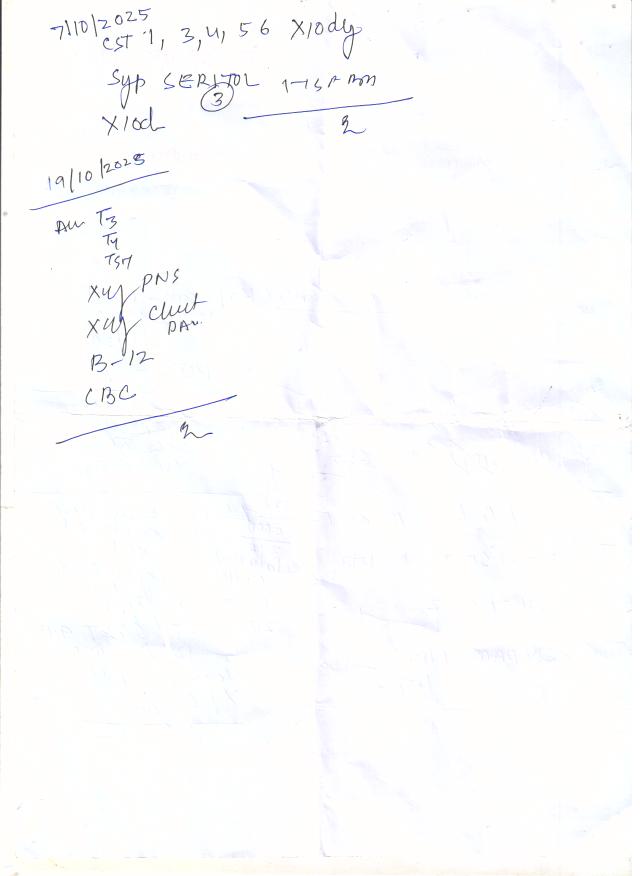 7/10/2025
CST 1, 3, 4, 5 6 X10dy
Syp SERITOL 1-1SF BM
3
X10d
19/10/2025
T3
T4
TSH
Xry PNS
Xry Chest
PAv.
B-12
CBC